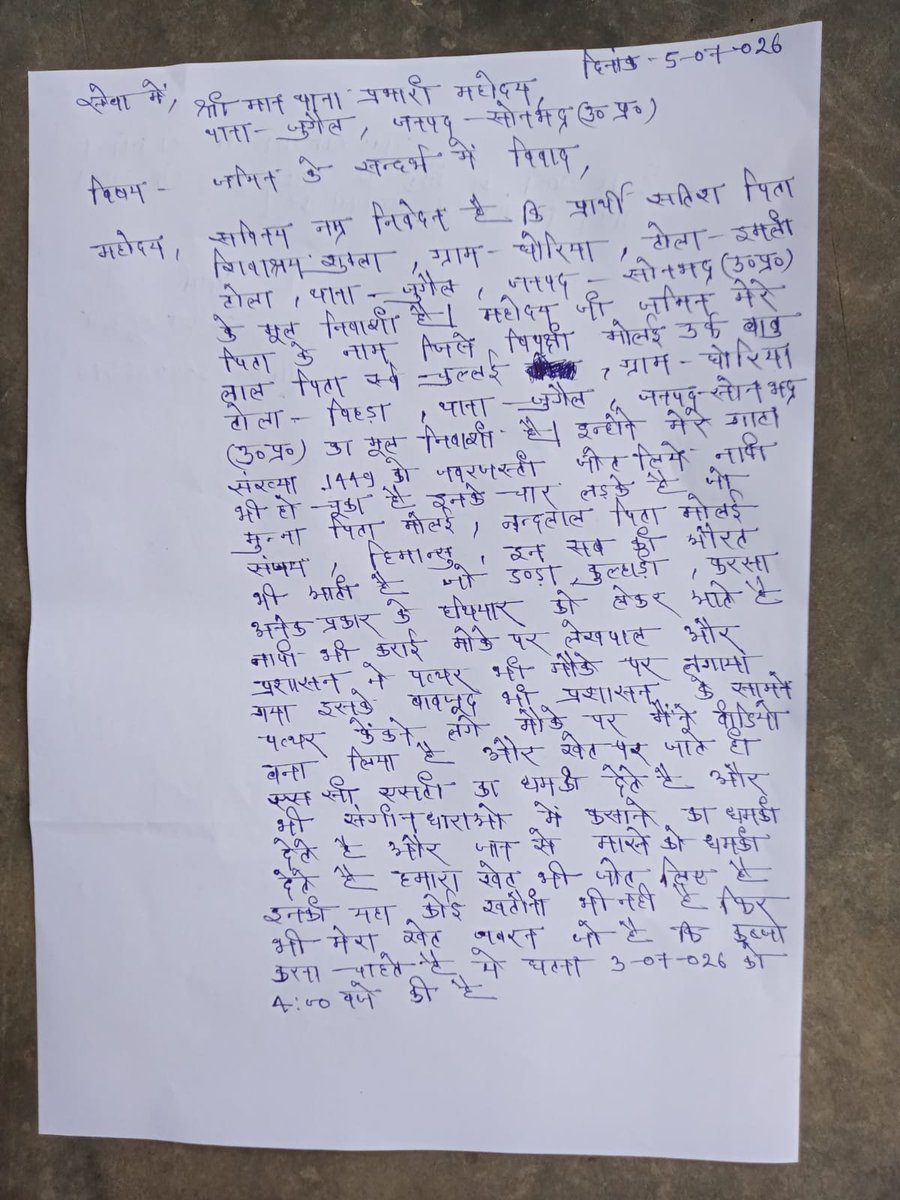 दिनांक - 5-07-026
सेवा में, श्री मान थाना प्रभारी महोदय,
थाना - जुगैल, जनपद - सोनभद्र (उ० प्र०)
विषय - जमिन के सन्दर्भ में विवाद,
महोदय, सविनय नम्र निवेदन है कि प्रार्थी सतिश पिता
शिवाश्रय शुक्ला, ग्राम - घोरिया, टोला - इमली
टोला, थाना - जुगैल, जनपद - सोनभद्र (उ०प्र०)
के मूल निवाशी है। महोदय जी जमिन मेरे
पिता के नाम जिसे विपक्षी मोलई उर्फ बाबु
लाल पिता स्व चुल्लई , ग्राम - घोरिया
टोला - पिहड़ा, थाना - जुगैल, जनपद - सोनभद्र
(उ०प्र०) का मूल निवाशी है। इन्होने मेरे गाटा
संख्या 1449 को जबरजस्ती जोत लिये नापी
भी हो चूका है इनके चार लड़के है जो
मुन्ना पिता मोलई, नन्दलाल पिता मोलई
संजय, हिमान्सु, इन सब की औरत
भी आती है जो डण्डा, कुल्हाड़ी, फरसा
अनेक प्रकार के हथियार को लेकर आते है
नापी भी कराई मौके पर लेखपाल और
प्रशासन ने पत्थर भी मौके पर लगाया
गया इसके बावजूद भी प्रशासन के सामने
पत्थर फेंकने लगे मौके पर मैंने वीडियो
बना लिया है और खेत पर जाते ही
एस सी एसटी का धमकी देते है और
भी संगीन धाराओ में फसाने का धमकी
देते है और जान से मारने को धमकी
देते है हमारा खेत भी जोत लिए है
इनकी यहा कोई खतौनी भी नही है फिर
भी मेरा खेत जबरन जो है कि कब्जा
करना चाहते है ये घटना 3-07-026 को
4:00 बजे की है